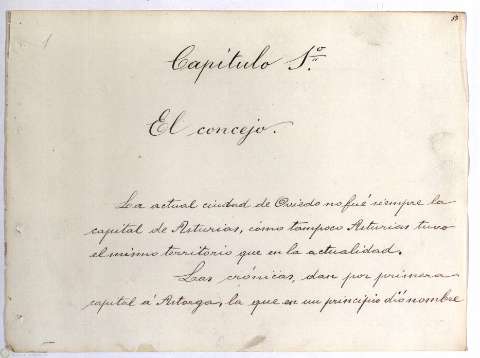 Capítulo 1.º
El concejo.
La actual ciudad de Oviedo no fué siempre la
capital de Asturias, cómo tampoco Asturias tuvo
el mismo territorio que en la actualidad.
Las crónicas, dan por primera
capital á Astorga, la que en un principio dió nombre